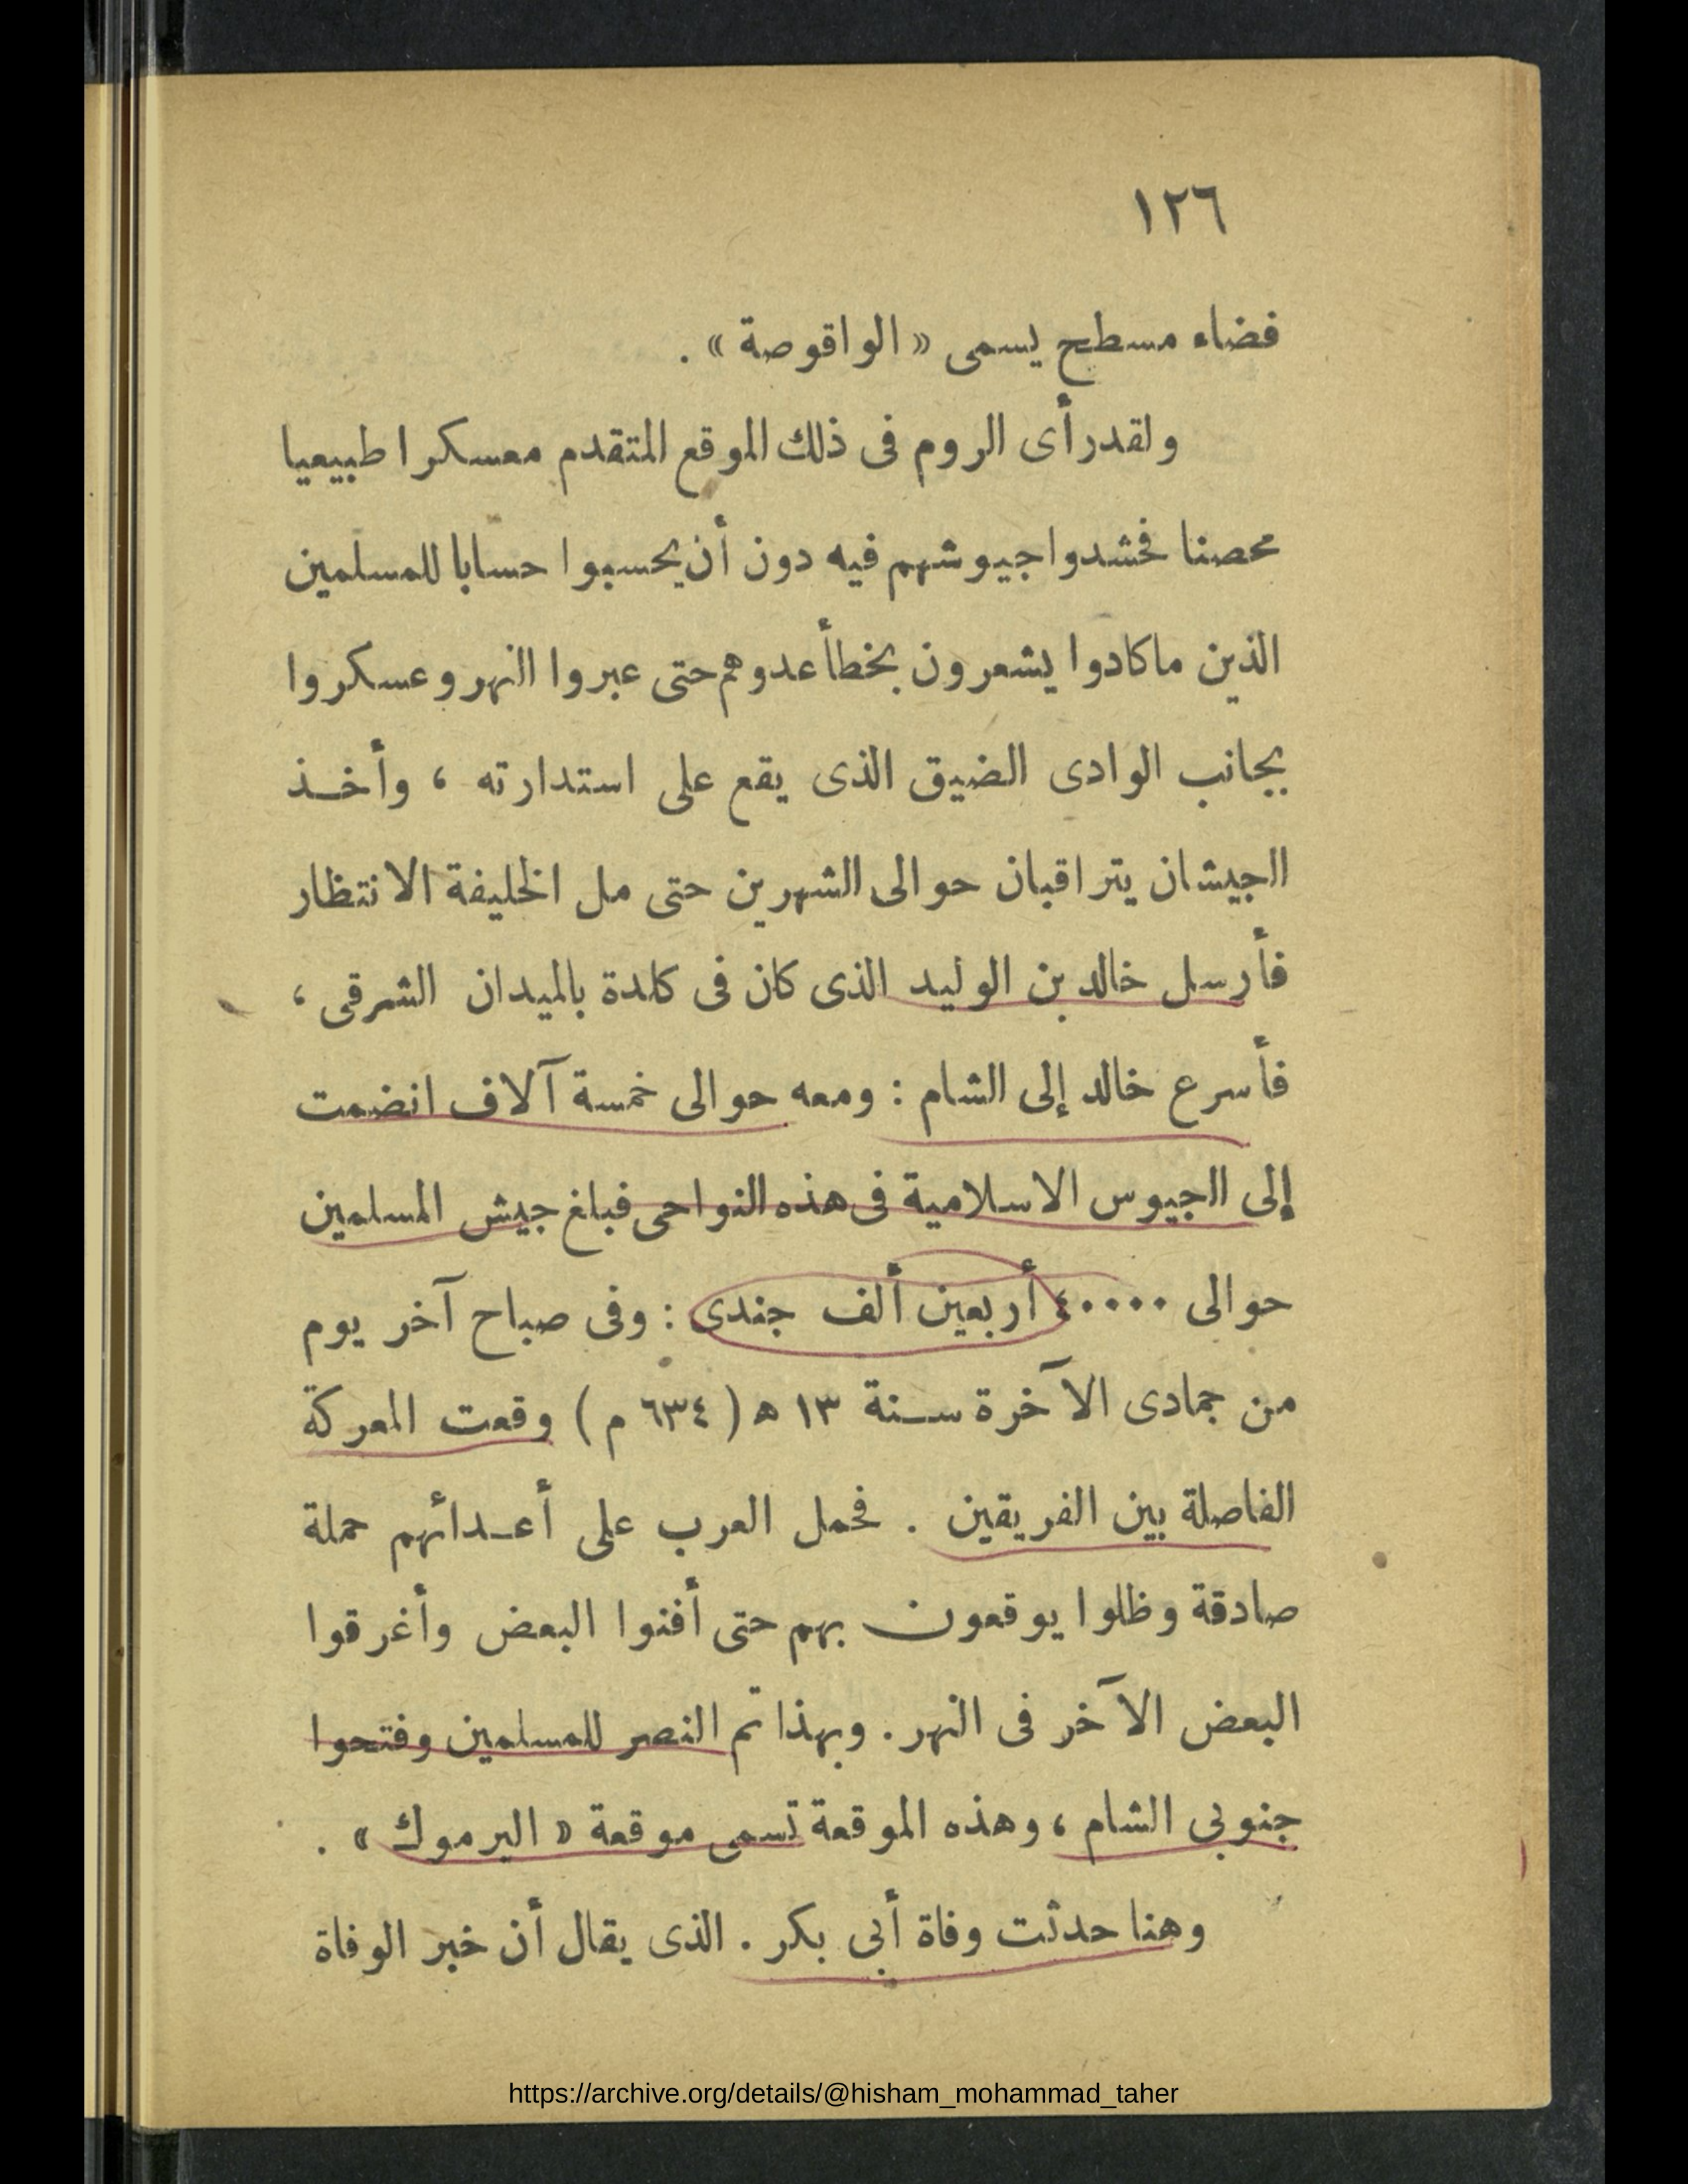 ١٢٦
فضاء مسطح يسمى « الواقوصة » .
ولقد رأى الروم فى ذلك الموقع المتقدم معسكرا طبيعيا
محصنا فحشدوا جيوشهم فيه دون أن يحسبوا حسابا للمسلمين
الذين ماكادوا يشعرون بخطأ عدوهم حتى عبروا النهر وعسكروا
بجانب الوادى الضيق الذى يقع على استدارته ، وأخذ
الجيشان يتراقبان حوالى الشهرين حتى مل الخليفة الانتظار
فأرسل خالد بن الوليد الذى كان فى كلدة بالميدان الشرقى ،
فأسرع خالد إلى الشام : ومعه حوالى خمسة آلاف انضمت
إلى الجيوس الاسلامية فى هذه النواحى فبلغ جيش المسلمين
حوالى ٤٠٠٠٠ أربعين ألف جندى : وفى صباح آخر يوم
من جمادى الآخرة سنة ١٣ ه ( ٦٣٤ م ) وقعت المعركة
الفاصلة بين الفريقين . فحمل العرب على أعدائهم حملة
صادقة وظلوا يوقعون بهم حتى أفنوا البعض وأغرقوا
البعض الآخر فى النهر . وبهذا تم النصر للمسلمين وفتحوا
جنوبى الشام ، وهذه الموقعة تسمى موقعة « اليرموك » .
وهنا حدثت وفاة أبى بكر . الذى يقال أن خبر الوفاة
https://archive.org/details/@hisham_mohammad_taher